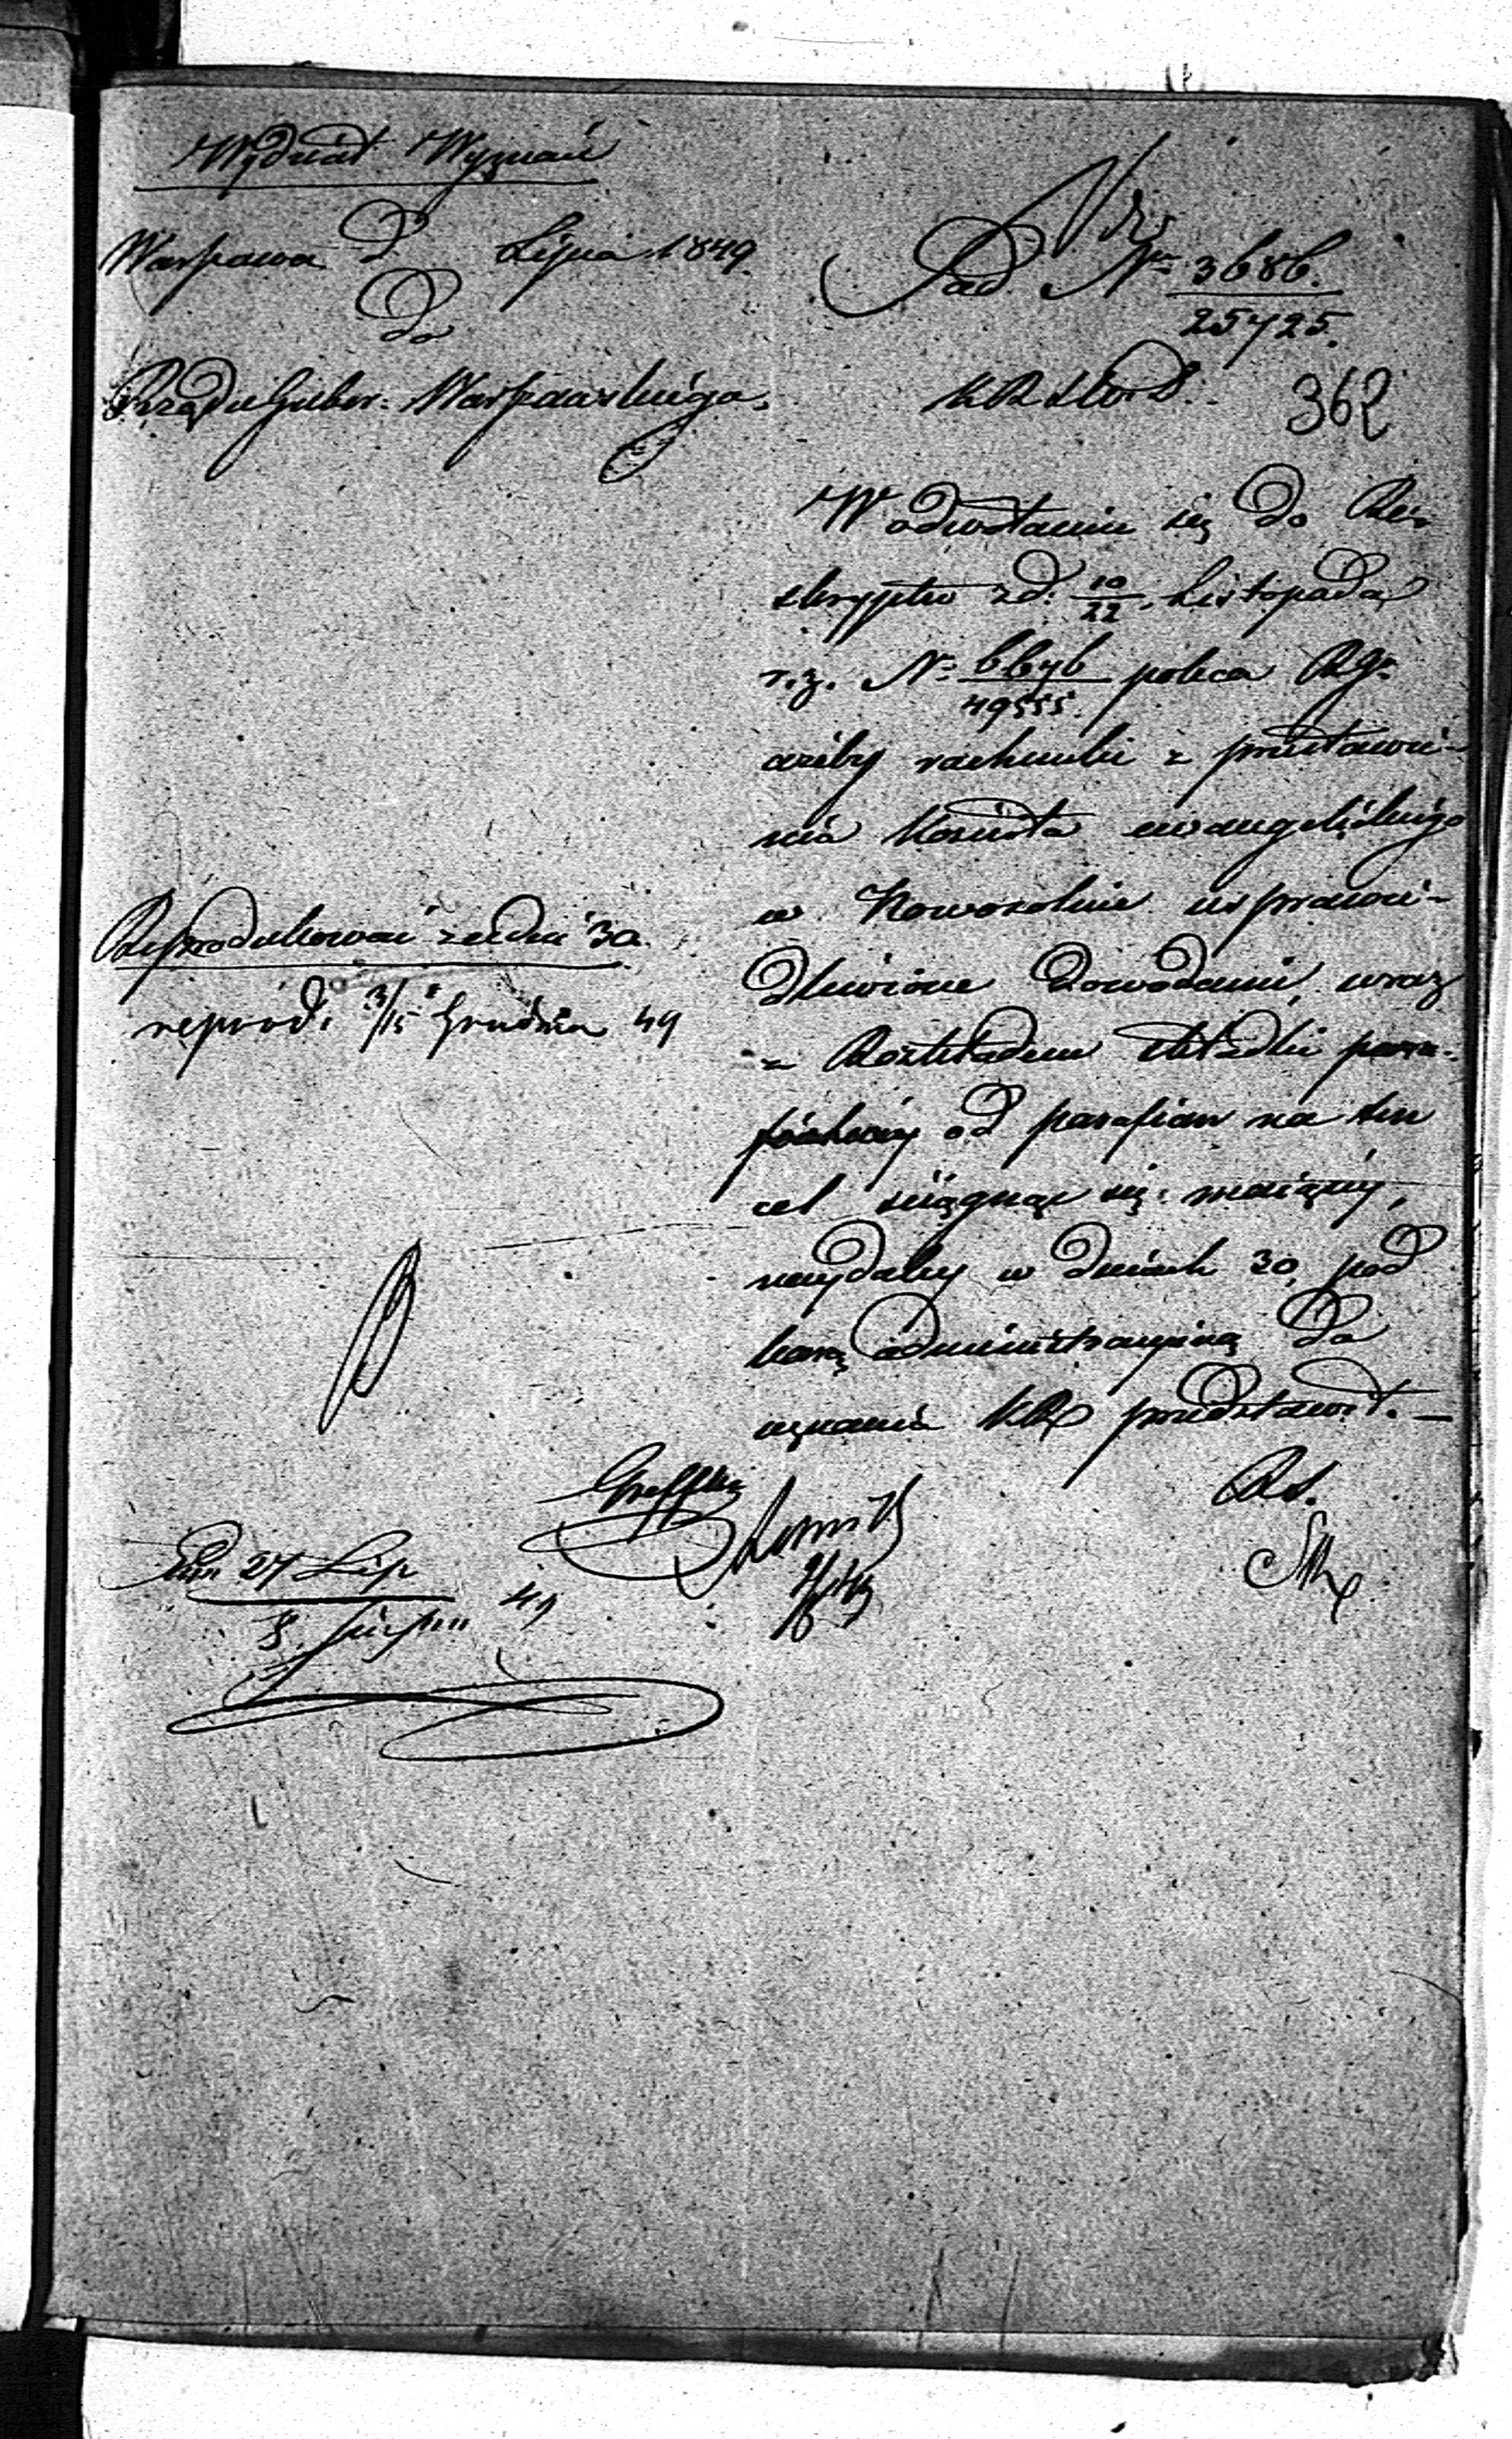 Wydział Wyznań
Warszawa d. Lipca 1849.
Do
Rządu Guber: Warszawskiego.
ad Nr 3686.
25725.
KRSWiD.
362
W odwołaniu się do Re-
skryptu z d. 10/22 Listopada
r.z. N: 6676/49555. poleca Rg:
ażeby rachunki z przestawie-
nia Kościoła ewangelickiego
w Nowosolnie usprawie-
dliwione dowodami, wraz
z Rozkładem składki para-
fialnej od parafian na ten
cel ściągnąć się mającej,
najdalej w dniach 30, pod
karą administracyjną do
uznania KR przedstawił. —
Reprodukować za dni 30.
reprod. 3/15 Grudnia 49
27 Lip
8. Sierpn 49